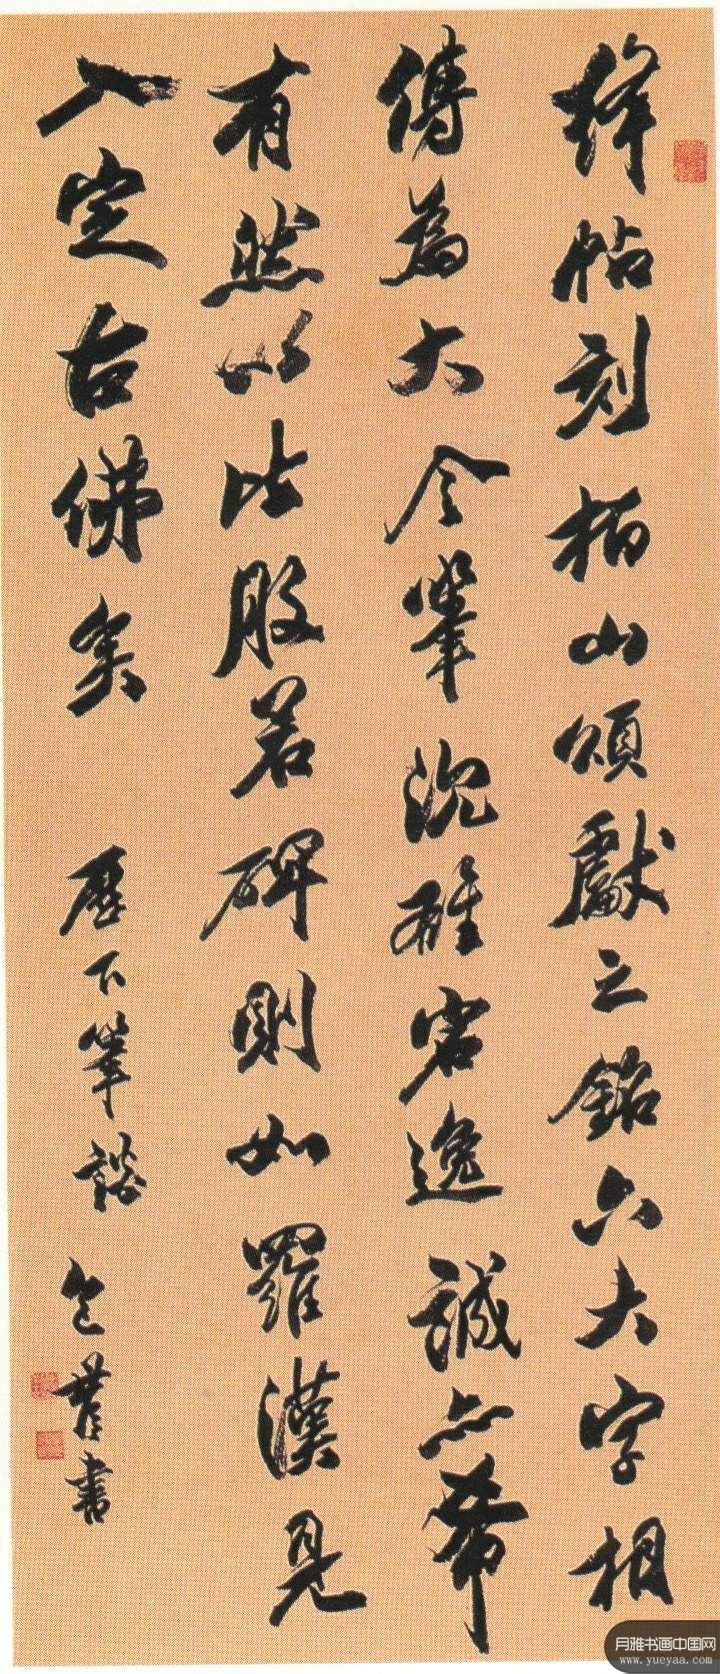 绛帖刻柏山頌獻之銘六大字相
傳為大令筆沉雄宕逸誠亦希
有然以此般若碑則如羅漢見
入定古佛矣
歷下筆談
包世臣書
月雅书画中国网
www.yueyaa.com